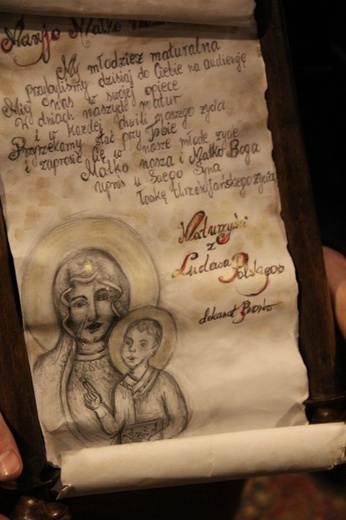 Maryjo Matko
My młodzież maturalna
przybyliśmy dzisiaj do Ciebie na audiencję
Miej nas w swojej opiece
w dniach naszych matur
i w każdej chwili naszego życia
Przyrzekamy stać przy Tobie
i zaprosić Cię w nasze młode życie
Matko nasza i Matko Boga
uproś u Swego Syna
łaskę chrześcijańskiego życia
Maturzyści
z
Ludowa Polskiego
dekanat